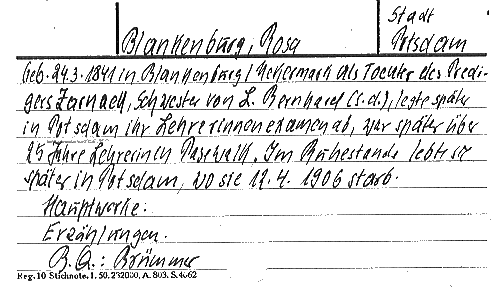 Stadt
Blankenburg, Rosa Potsdam
geb. 24.3.1841 in Blankenburg/Uckermark als Tochter des Predi-
gers Zarnack, Schwester von L. Bernhard (s.d.), legte später
in Potsdam ihr Lehrerinnenexamen ab, war später über
25 Jahre Lehrerin in Pasewalk. Im Ruhestande lebte sie
später in Potsdam, wo sie 12.4.1906 starb.
Hauptwerke:
Erzählungen.
B.Q.: Brümmer
Reg. 10 Stichnote. I. 50. 232030, A. 803. S. 4662